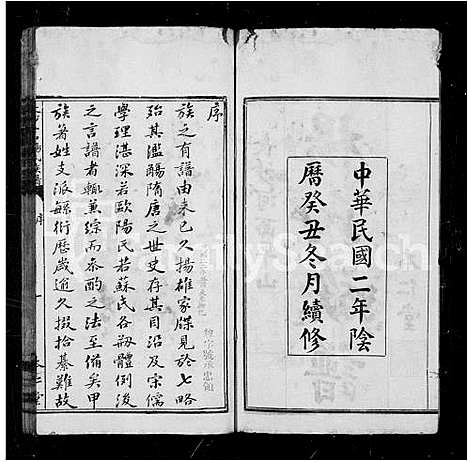 中華民國二年陰
曆癸丑冬月續修
序
族之有譜由來已久揚雄家牒見於七略
殆其濫觴隋唐之世史存其目沿及宋儒
學理湛深若歐陽氏若蘇氏各剏體例後
之言譜者輒兼綜而參酌之法至備矣甲
族著姓支派緐衍歷歲逾久掇拾綦難故
FamilySearch